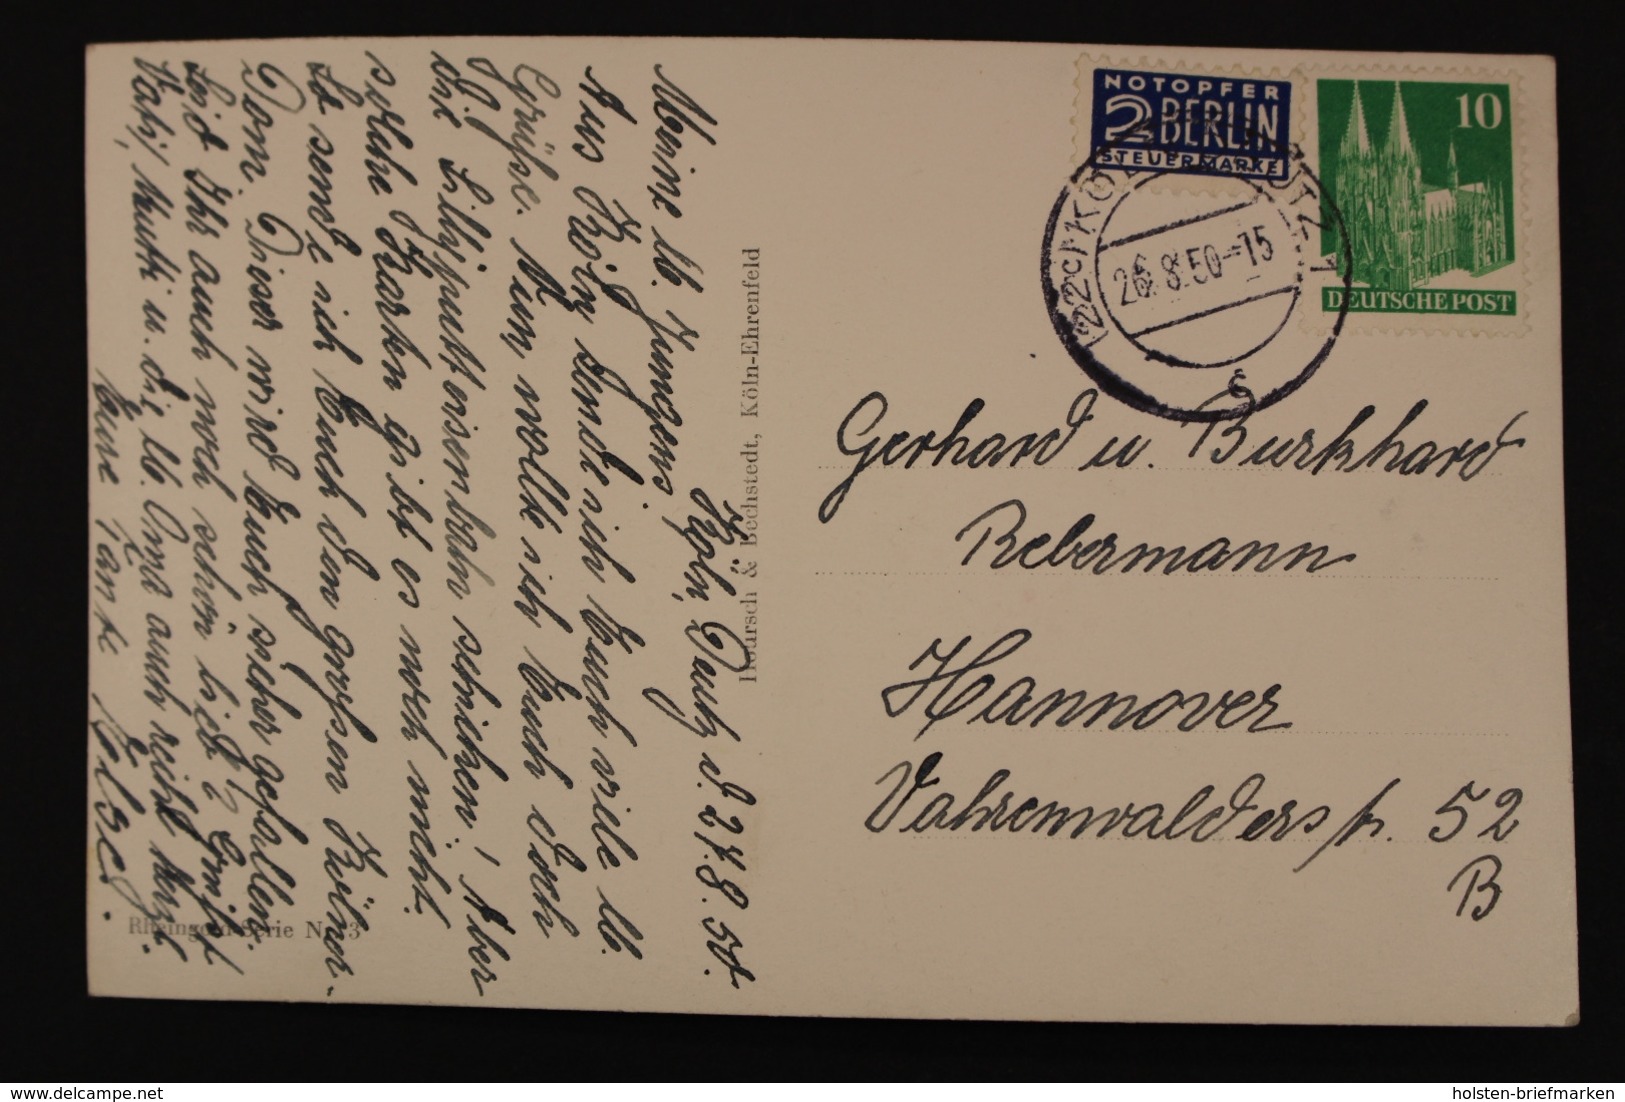 Köln, Deutz d. 27.8.50.
Meine lb. Jungens,
Aus Köln sende ich Euch viele lb.
Grüße. Nun wollte ich Euch doch
die Lilliputteisenbahn schicken! Aber
solche Karten gibt es noch nicht.
So sende ich Euch den großen Kölner-
Dom. Dieser wird Euch sicher gefallen.
Seid Ihr auch noch schön lieb? Grüßt
Vati, Mutti u. die lb. Oma auch recht herzl.
Eure Tante Else.
Hoursch & Bechstedt, Köln-Ehrenfeld
Rheingold-Serie Nr. 3
NOTOPFER
2 BERLIN
STEUERMARKE
10
DEUTSCHE POST
(22c) KÖLN-DEUTZ 1
26.8.50-15
s
Gerhard u. Burkhard
Rebermann
Hannover
Vahrenwalderstr. 52
B
delcampe.net
holsten-briefmarken